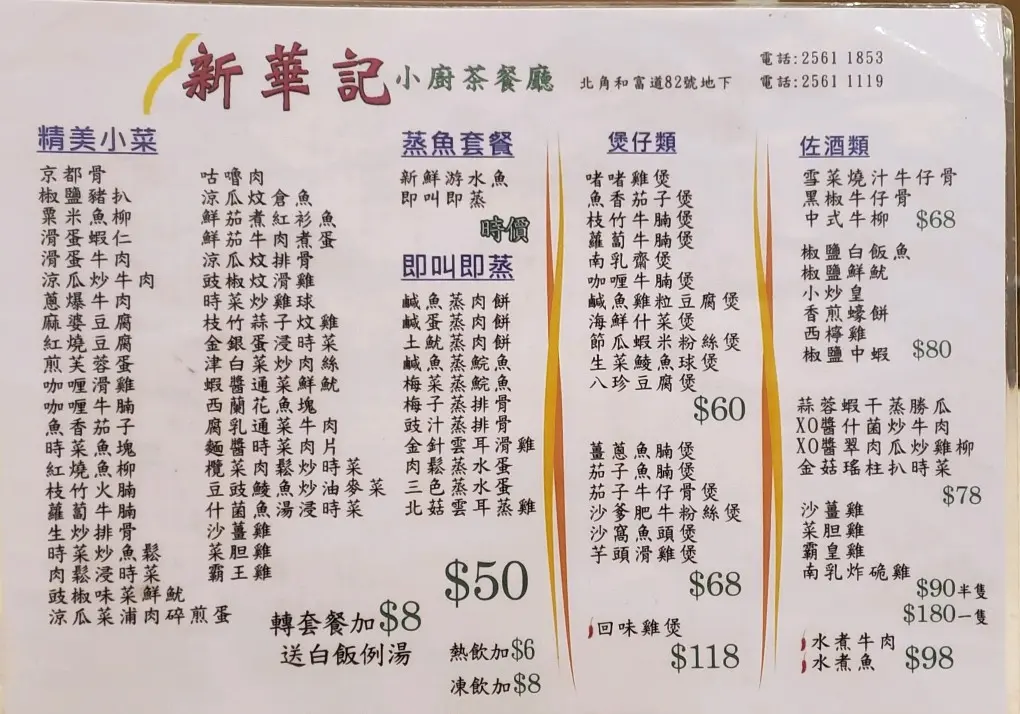 新華記小廚茶餐廳
北角和富道82號地下
電話:2561 1853
電話:2561 1119
精美小菜
京都骨
椒鹽豬扒
粟米魚柳
滑蛋蝦仁
滑蛋牛肉
涼瓜炒牛肉
蔥爆牛肉
麻婆豆腐
紅燒豆腐
煎芙蓉蛋
咖喱滑雞
咖喱牛腩
魚香茄子
時菜魚塊
紅燒魚柳
枝竹火腩
蘿蔔牛腩
生炒排骨
時菜炒魚鬆
肉鬆浸時菜
豉椒味菜鮮魷
涼瓜菜浦肉碎煎蛋
咕嚕肉
涼瓜炆倉魚
鮮茄煮紅衫魚
鮮茄牛肉煮蛋
涼瓜炆排骨
豉椒炆滑雞
時菜炒雞球
枝竹蒜子炆雞
金銀蛋浸時菜
津白菜炒肉絲
蝦醬通菜鮮魷
西蘭花魚塊
腐乳通菜牛肉
麵醬時菜肉片
欖菜肉鬆炒時菜
豆豉鯪魚炒油麥菜
什菌魚湯浸時菜
沙薑雞
菜胆雞
霸王雞
蒸魚套餐
新鮮游水魚
即叫即蒸
時價
即叫即蒸
鹹魚蒸肉餅
鹹蛋蒸肉餅
土魷蒸肉餅
鹹魚蒸鯇魚
梅菜蒸鯇魚
梅子蒸排骨
豉汁蒸排骨
金針雲耳滑雞
肉鬆蒸水蛋
三色蒸水蛋
北菇雲耳蒸雞
$50
轉套餐加$8
送白飯例湯
熱飲加$6
凍飲加$8
煲仔類
啫啫雞煲
魚香茄子煲
枝竹牛腩煲
蘿蔔牛腩煲
南乳齋煲
咖喱牛腩煲
鹹魚雞粒豆腐煲
海鮮什菜煲
節瓜蝦米粉絲煲
生菜鯪魚球煲
八珍豆腐煲
$60
薑蔥魚腩煲
茄子魚腩煲
茄子牛仔骨煲
沙爹肥牛粉絲煲
沙窩魚頭煲
芋頭滑雞煲
$68
回味雞煲
$118
佐酒類
雪菜燒汁牛仔骨
黑椒牛仔骨
中式牛柳 $68
椒鹽白飯魚
椒鹽鮮魷
小炒皇
香煎蠔餅
西檸雞
椒鹽中蝦 $80
蒜蓉蝦干蒸勝瓜
XO醬什菌炒牛肉
XO醬翠肉瓜炒雞柳
金菇瑤柱扒時菜
$78
沙薑雞
菜胆雞
霸皇雞
南乳炸硊雞
$90半隻
$180一隻
水煮牛肉
水煮魚 $98